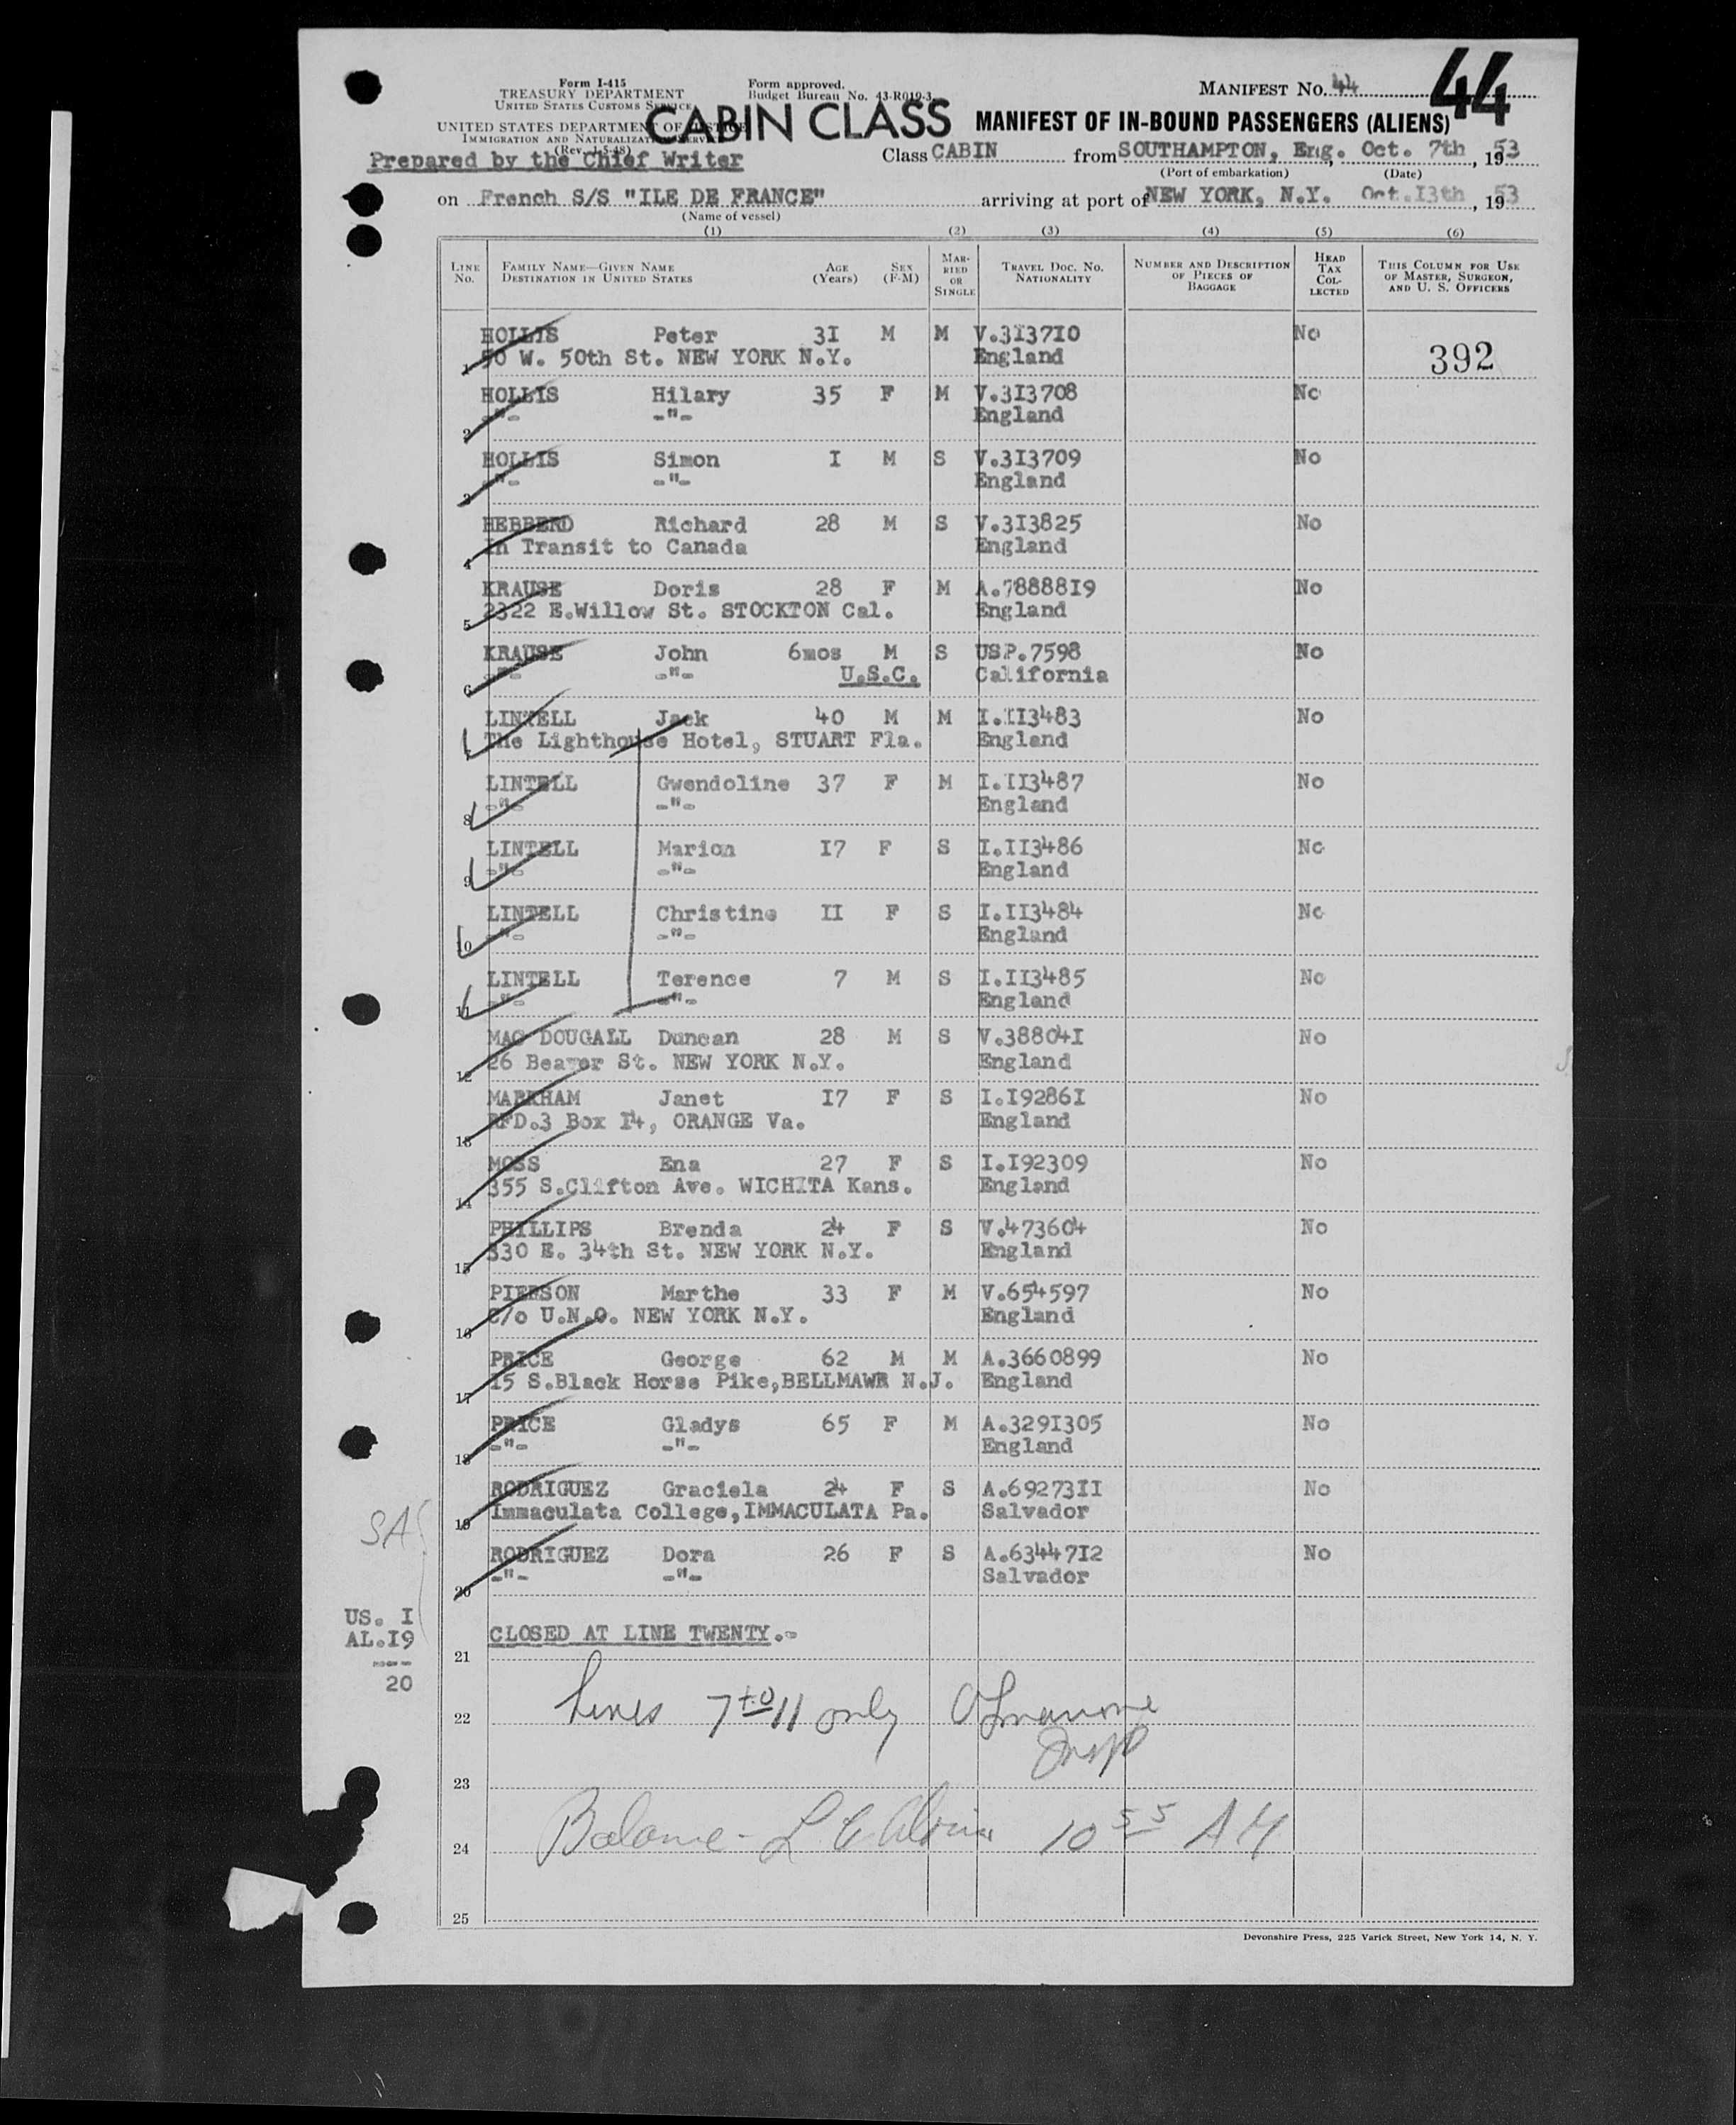 Form I-415
TREASURY DEPARTMENT
UNITED STATES CUSTOMS SERVICE
UNITED STATES DEPARTMENT OF JUSTICE
IMMIGRATION AND NATURALIZATION SERVICE
(Rev. 1-5-48)
Form approved.
Budget Bureau No. 43-R019-3
MANIFEST No. 44
44
CABIN CLASS MANIFEST OF IN-BOUND PASSENGERS (ALIENS)
Prepared by the Chief Writer
Class CABIN from SOUTHAMPTON, Eng., Oct. 7th, 1953
(Port of embarkation) (Date)
on French S/S "ILE DE FRANCE" arriving at port of NEW YORK, N.Y. Oct.I3th, 1953
(Name of vessel)
(1) (2) (3) (4) (5) (6)
LINE No. FAMILY NAME—GIVEN NAME DESTINATION IN UNITED STATES AGE (Years) SEX (F-M) MARRIED OR SINGLE TRAVEL DOC. NO. NATIONALITY NUMBER AND DESCRIPTION OF PIECES OF BAGGAGE HEAD TAX COLLECTED THIS COLUMN FOR USE OF MASTER, SURGEON, AND U. S. OFFICERS
HOLLIS Peter 3I M M V.3I37I0 No
1 50 W. 50th St. NEW YORK N.Y. England 392
HOLLIS Hilary 35 F M V.3I3708 No
2 -"- -"- England
HOLLIS Simon I M S V.3I3709 No
3 -"- -"- England
HEBBERD Richard 28 M S V.3I3825 No
4 In Transit to Canada England
KRAUSE Doris 28 F M A.78888I9 No
5 2322 E.Willow St. STOCKTON Cal. England
KRAUSE John 6mos M S USP.7598 No
6 -"- -"- U.S.C. California
LINTELL Jack 40 M M I.II3483 No
7 The Lighthouse Hotel, STUART Fla. England
LINTELL Gwendoline 37 F M I.II3487 No
8 -"- -"- England
LINTELL Marion I7 F S I.II3486 No
9 -"- -"- England
LINTELL Christine II F S I.II3484 No
10 -"- -"- England
LINTELL Terence 7 M S I.II3485 No
11 -"- -"- England
MAC DOUGALL Duncan 28 M S V.38804I No
12 26 Beaver St. NEW YORK N.Y. England
MARKHAM Janet I7 F S I.I9286I No
13 RFD.3 Box I4, ORANGE Va. England
MOSS Ena 27 F S I.I92309 No
14 355 S.Clifton Ave. WICHITA Kans. England
PHILLIPS Brenda 24 F S V.473604 No
15 330 E. 34th St. NEW YORK N.Y. England
PIERSON Marthe 33 F M V.654597 No
16 c/o U.N.O. NEW YORK N.Y. England
PRICE George 62 M M A.3660899 No
17 I5 S.Black Horse Pike,BELLMAWR N.J. England
PRICE Gladys 65 F M A.329I305 No
18 -"- -"- England
RODRIGUEZ Graciela 24 F S A.69273II No
19 Immaculata College,IMMACULATA Pa. Salvador
RODRIGUEZ Dora 26 F S A.63447I2 No
20 -"- -"- Salvador
SA
US. I
AL.I9
----
20
CLOSED AT LINE TWENTY.-
21
22 Lines 7 to 11 only
Insp
23
24 Balance - 10 55 AM
25
Devonshire Press, 225 Varick Street, New York 14, N. Y.